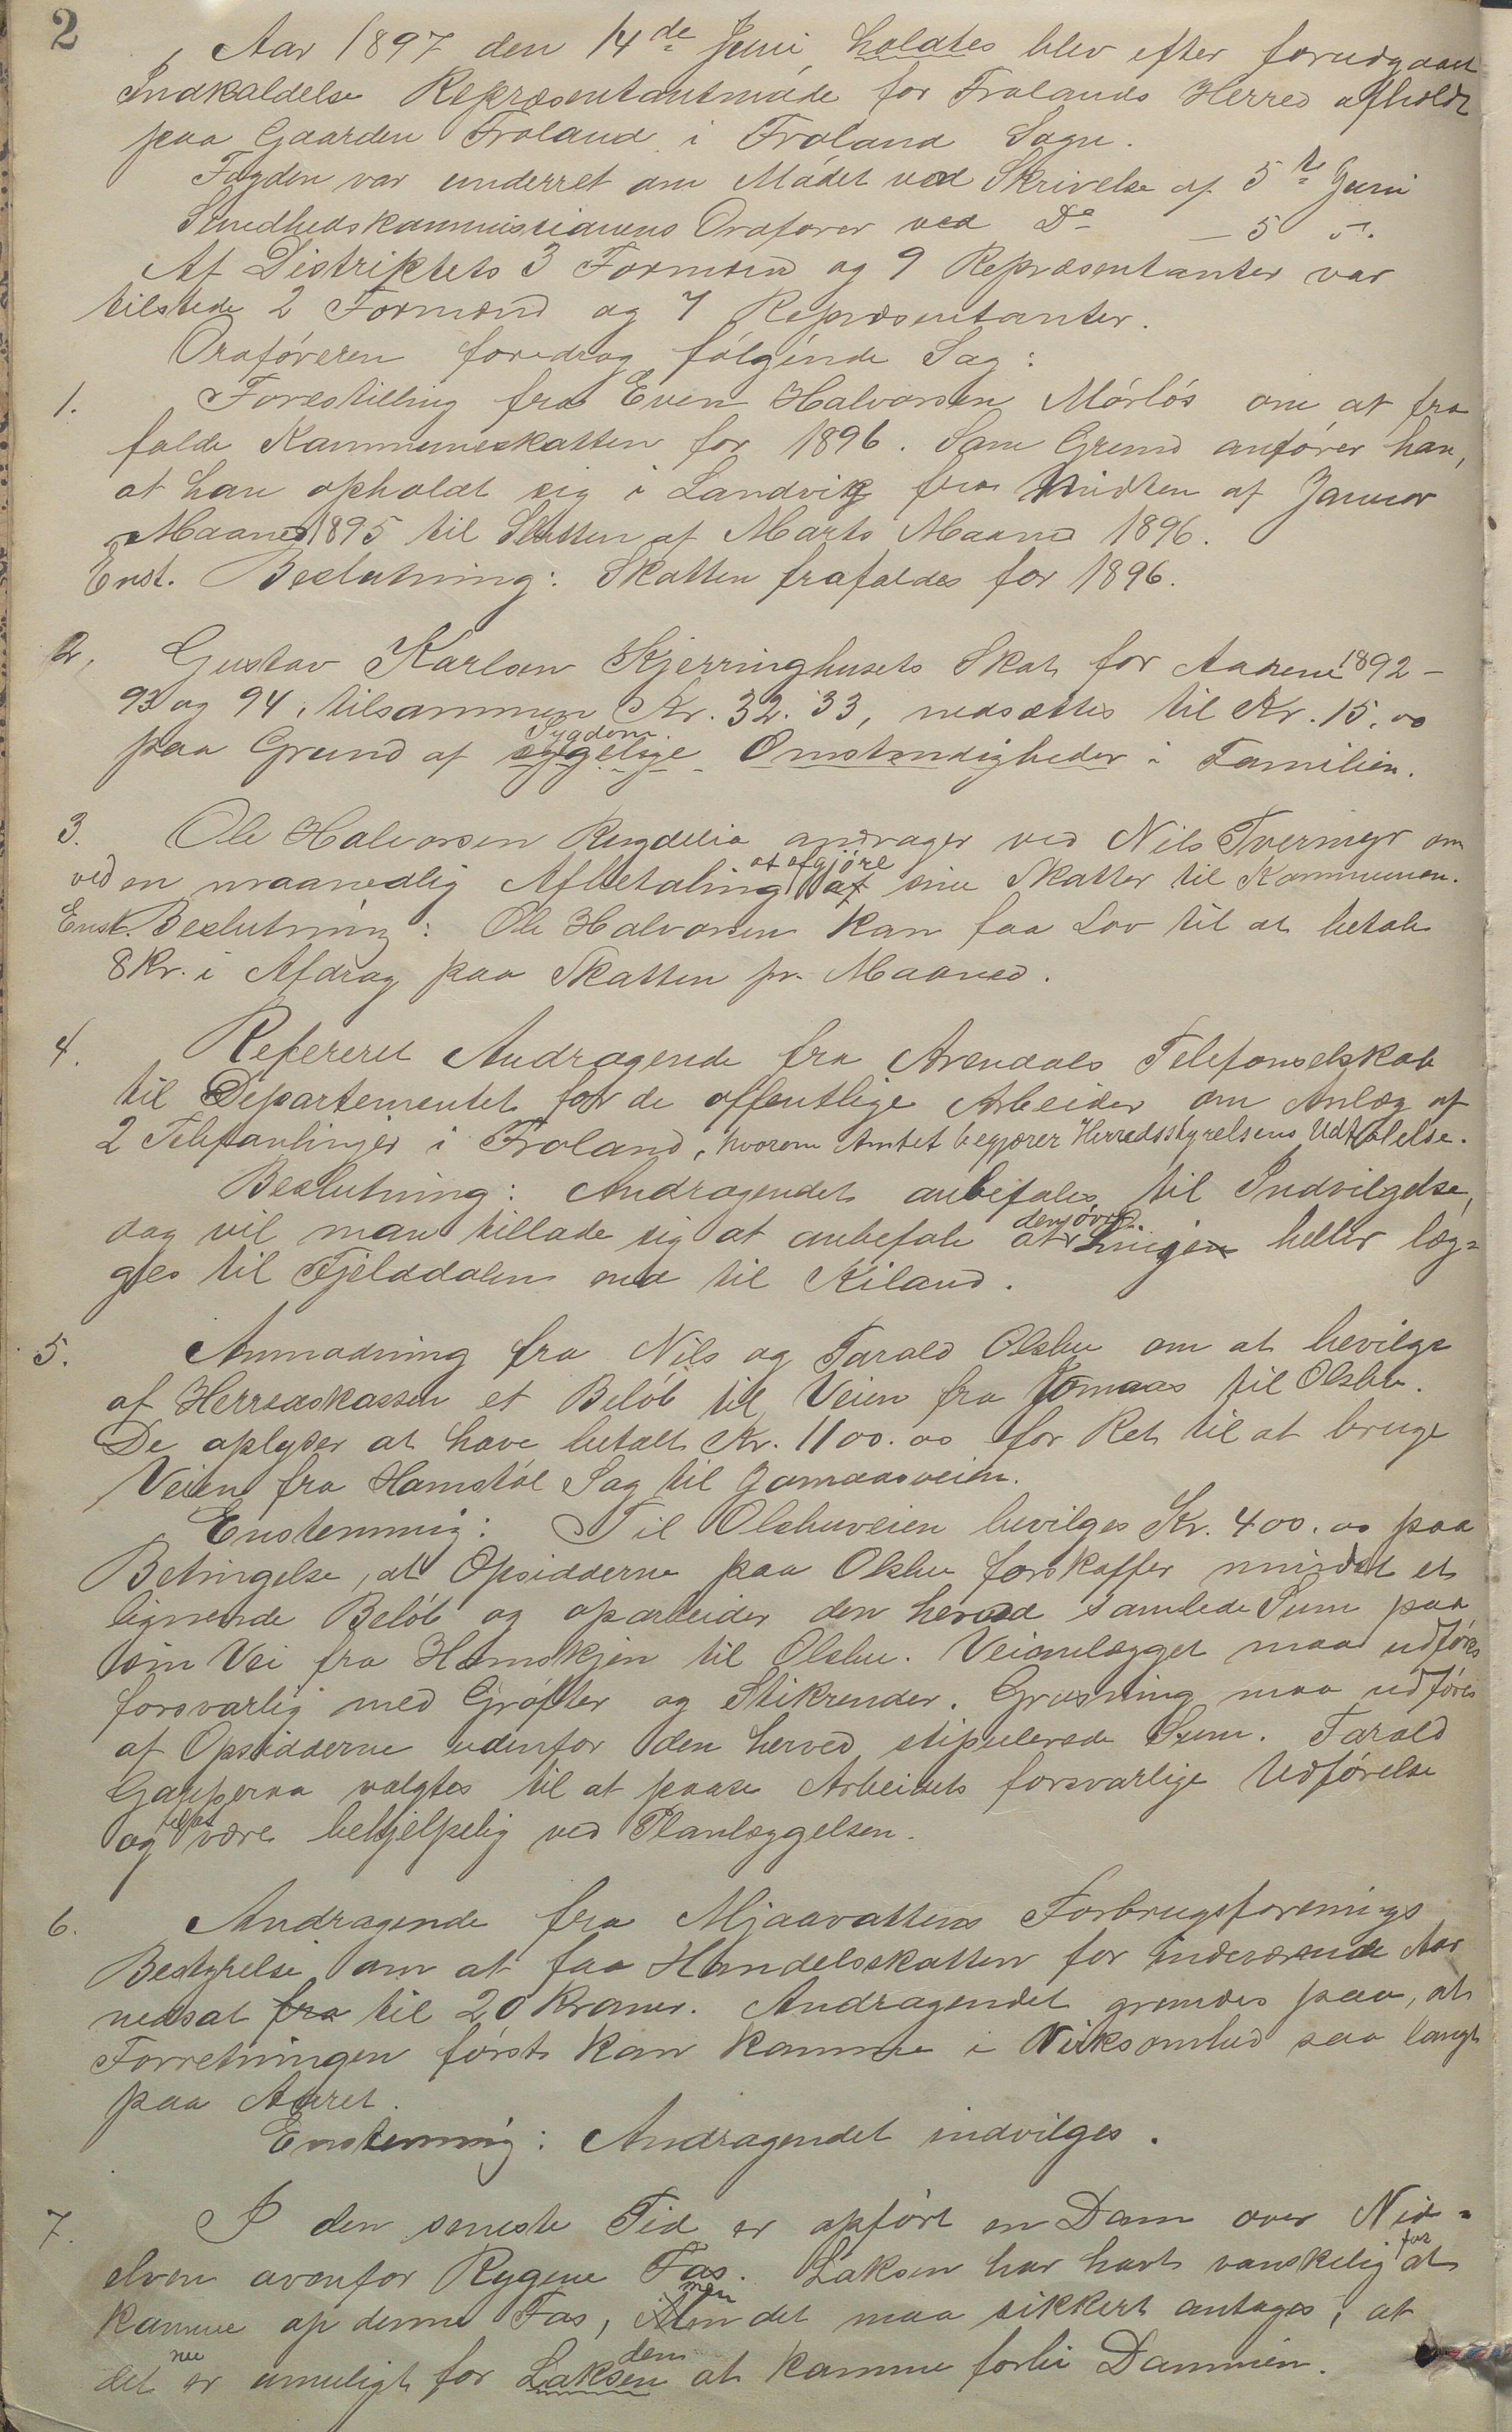 2
Aar 1897 den 14de Juni holdtes blev efter forudgaaet
Indkaldelse Repræsentantmøde for Frolands Herred afholdt
paa Gaarden Froland i Froland Sogn.
Fogden var underret om Mødet ved Skrivelse af 5te Juni
Sundhedskommissionens Ordfører ved Do — 5 s.
Af Distriktets 3 Formænd og 9 Repræsentanter var
tilstede 2 Formænd og 7 Repræsentanter.
Ordføreren foredrog følgende Sag:
1. Forestilling fra Even Halvorsen Mørløs om at fra
falde Kommuneskatten for 1896. Som Grund anfører han,
at han opholdt sig i Landvik fra Midten af Januar
Maaned 1895 til Slutten af Marts Maaned 1896.
Enst. Beslutning: Skatten frafaldes for 1896.
2. Gustav Karlsen Kjerringhusets Skat for Aarene 1892-
93 og 94, tilsammen Kr. 32.33, nedsættes til Kr. 15.00
Sygdom
paa Grund af sygelige Omstændigheder i Familien.
3. Ole Halvorsen Rugdelia andrager ved Nils Tvermyr om
at afgjøre
ved en maanedlig Afbetaling af sine Skatter til Kommunen.
Enst. Beslutning: Ole Halvorsen kan faa Lov til at betale
8 Kr. i Afdrag paa Skatten pr. Maaned.
4. Refereret Andragende fra Arendals Telefonselskab
til Departementet for de offentlige Arbeider om Anlæg af
2 Telefonlinjer i Froland, hvorom Amtet begjærer Herredsstyrelsens Udtalelse.
Beslutning: Andragendet anbefales til Indvilgelse,
den øvre
dog vil man tillade sig at anbefale at Linjen heller læg=
ges til Fjelddalen end til Kiland.
5. Anmodning fra Nils og Tarald Olsbu om at bevilge
af Herredskassen et Beløb til Veien fra Jomaas til Olsbu.
De oplyser at have betalt Kr. 1100.00 for Ret til at bruge
Veien fra Hamstøl Sag til Jomaasveien.
Enstemmig: Til Olsbuveien bevilges Kr. 400.00 paa
Betingelse, at Opsidderne paa Olsbu forskaffer mindst et
lignende Beløb og oparbeider den herved samlede Sum paa
sin Vei fra Homskjen til Olsbu. Veianlægget maa udføres
forsvarlig med Grøfter og Stikrender. Grusning maa udføres
af Opsidderne udenfor den herved stipulerede Sum. Tarald
Gauperaa valgtes til at paase Arbeidets forsvarlige Udførelse
til at
og være behjelpelig ved Planlæggelsen.
6. Andragende fra Mjaavattens Forbrugsforenings
Bestyrelse om at faa Handelsskatten for indeværende Aar
nedsat fra til 20 Kroner. Andragendet grundes paa, at
Forretningen først kan komme i Virksomhed saa langt
paa Aaret.
Enstemmig: Andragendet indvilges.
7. I den seneste Tid er opført en Dam over Nid=
for
elven ovenfor Rygene Fos. Laksen har havt vanskelig at
men
komme op denne Fos, Men det maa sikkert antages, at
nu dem
det er umuligt for Laksen at komme forbi Dammen.